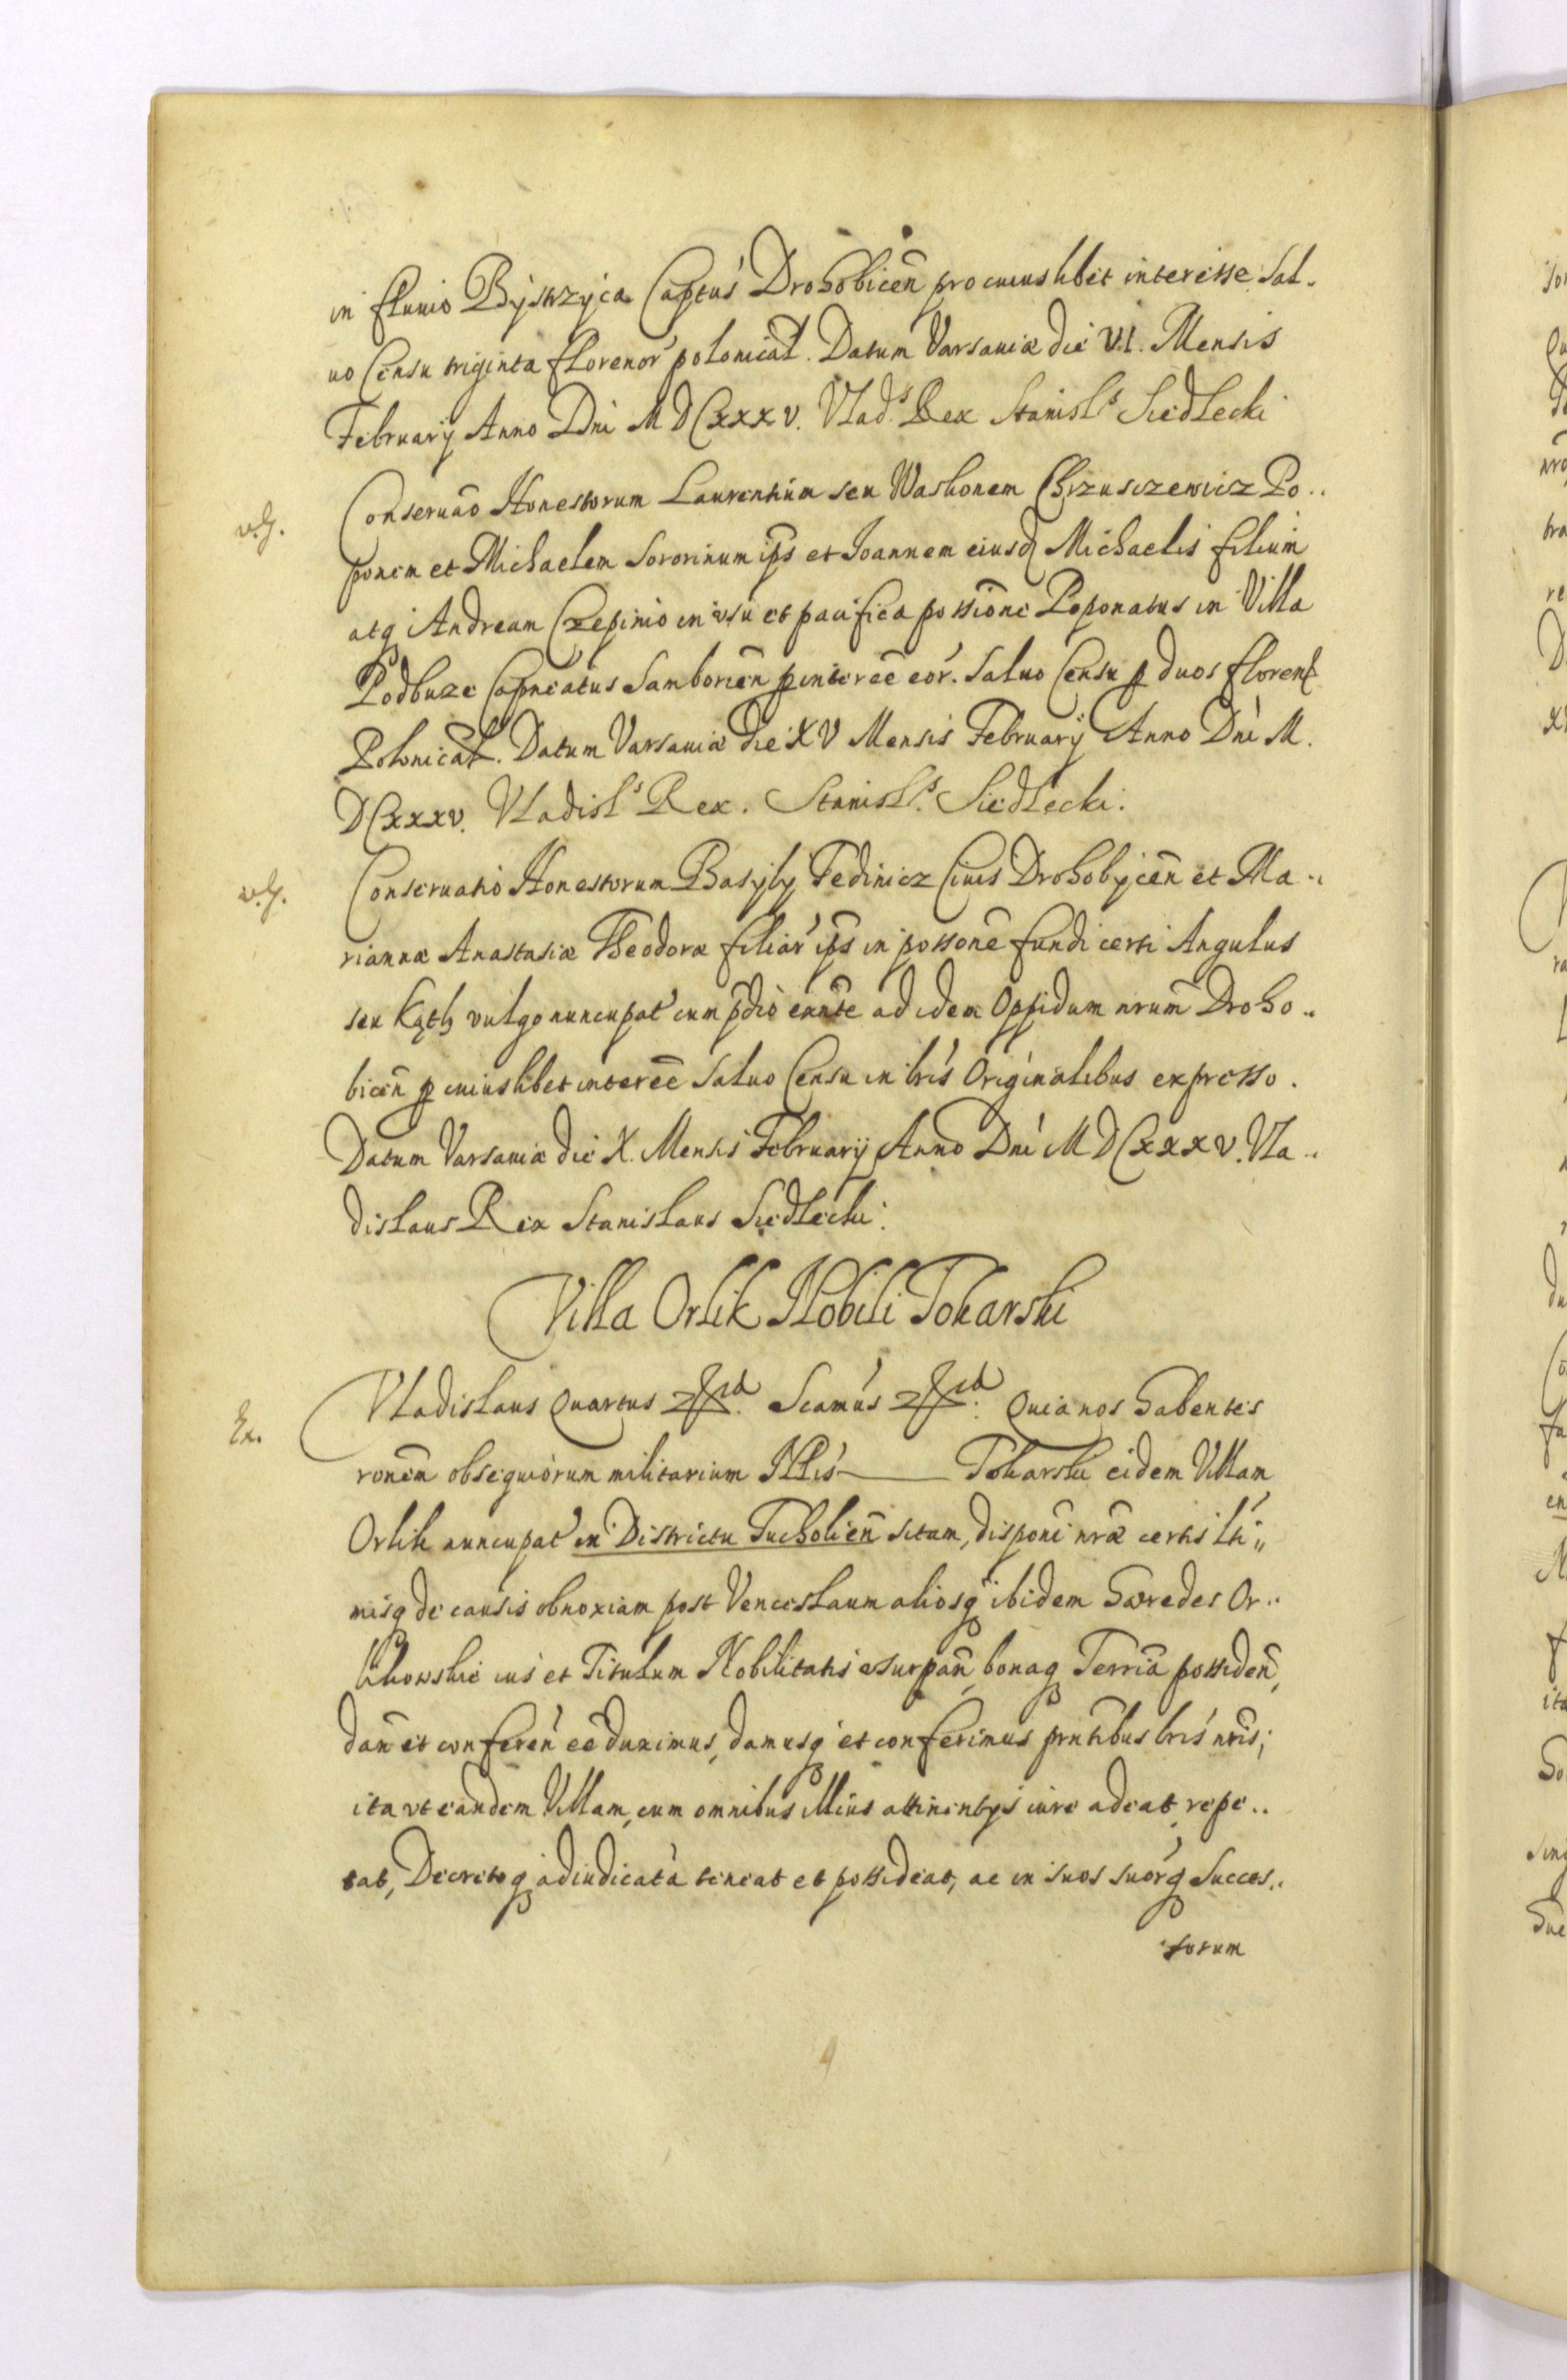 in fluuio Bystrzyca Captus Drohobicen̄ pro cuiuslibet interesse sal-
uo Censu triginta florenor' polonical. Datum Varsauiæ die VI. Mensis
February Anno Dni MDCxxxv. Vlad.s Rex Stanisl.s Siedlecki
v.g. Conseruāo Honestorum Laurentium seu Waskonem Chrzusczewicz Po..
ponem et Michaelem Sororinum ips et Ioannem eiusq Michaelis filium
atq Andream Czepinio in vsu et pacifica possione Poponatus in Villa
Podbuze Capneatus Samborien̄ p intereē eor'. Saluo Censu p duos floren
Polonical. Datum Varsauiæ die XV Mensis February Anno Dni M.
DCxxxv. Vladisl.s Rex. Stanisl.s Siedlecki.
v.g. Conseruatio Honestorum Basyly Fedinicz Ciuis Drohobycen̄ et Ma..
riannæ Anastasiæ Theodoræ filiar' ips in possone fundi certi Angulus
seu Kąth vulgo nuncupat' cum pdio exnte ad idem Oppidum nrum Droho..
bicen̄ p cuiuslibet intereē Saluo Censu in lris Originalibus expresso.
Datum Varsauiæ die X. Mensis February Anno Dni MDCxxxv. Vla..
dislaus Rex Stanislaus Siedlecki.
Villa Orlik Nobili Tokarski
Ex. Vladislaus Quartus Scamus Quia nos habentes
ronem obsequiorum militarium Nlis — Tokarski eidem Villam
Orlik nuncupat' in Districtu Tucholien̄ sitam, disponi nræ certis lti"
misq de causis obnoxiam post Venceslaum aliosq ibidem hæredes Or..
likowskie ius et Titulum Nobilitatis vsurpan̄, bonaq Terria possiden̄,
dan̄ et conferen̄ eē duximus, damusq et conferimus prntibus lris nris;
ita vt eandem Villam, cum omnibus illius attinentys iure adeat, repe..
tat, Decretoq adiudicata teneat et possideat, ac in suos suorq Succes..
sorum